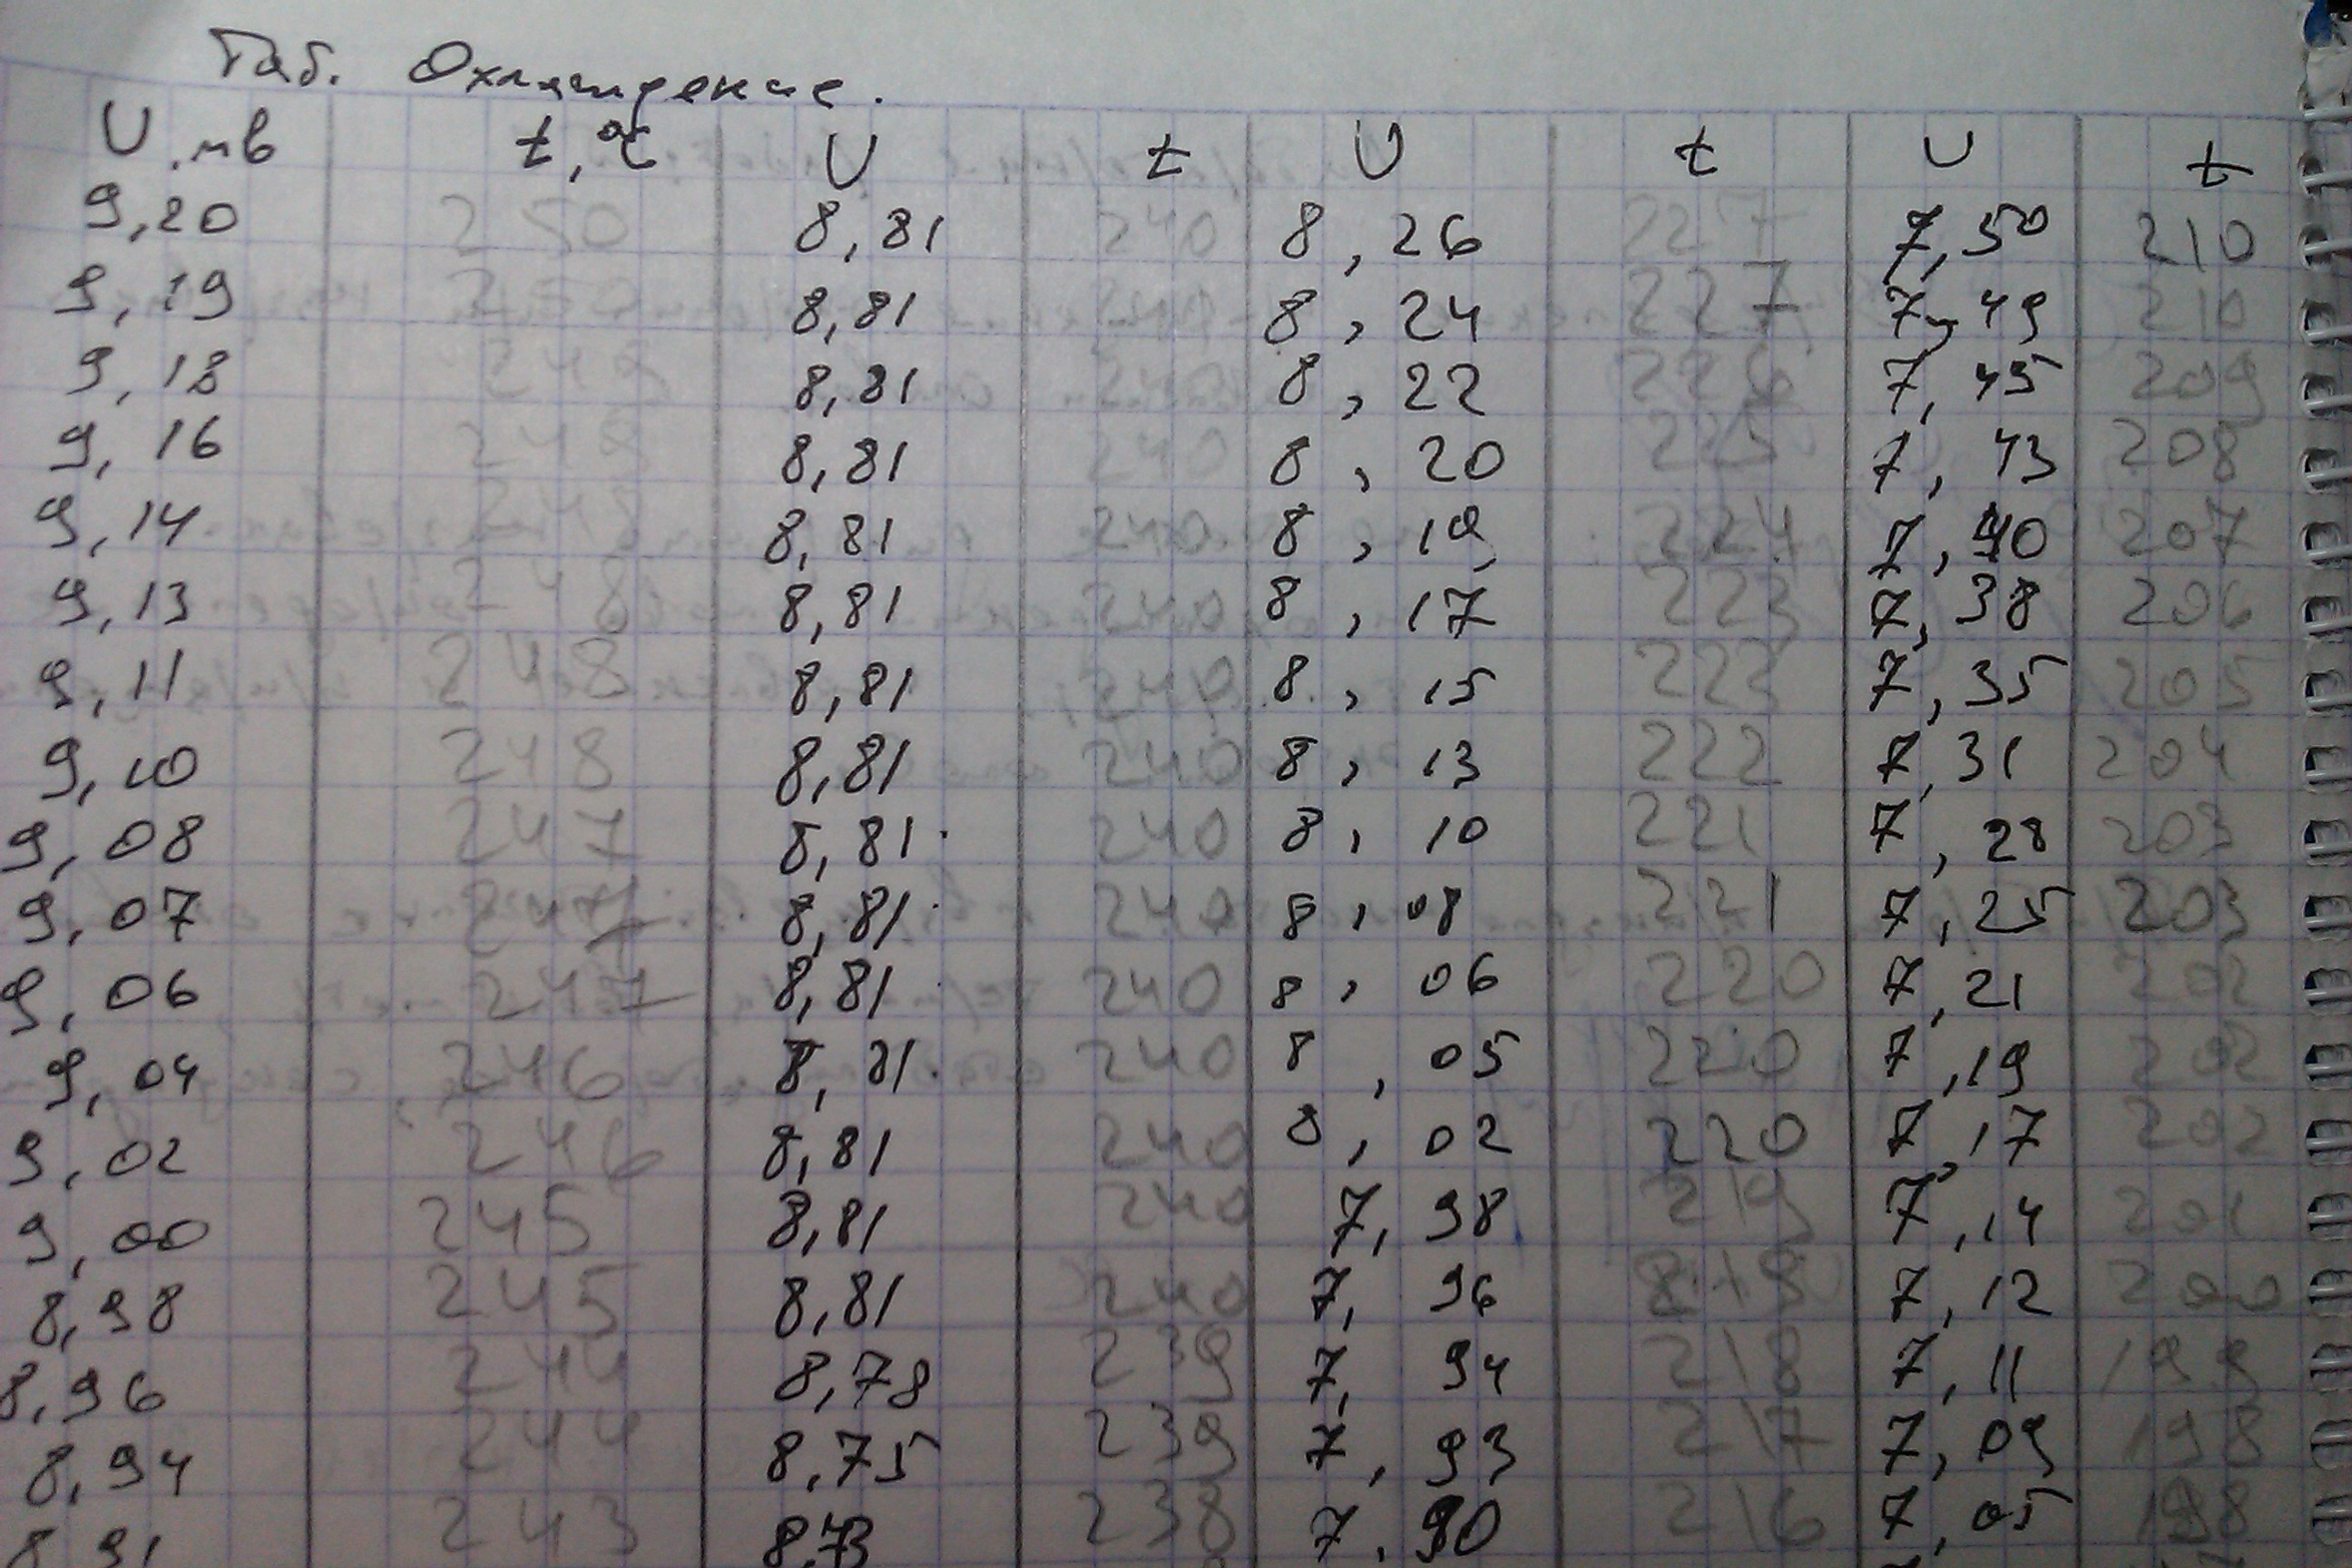 Таб. Охлаждение.
U, мв t, °C U t U t U t
9,20 250 8,81 240 8,26 227 7,50 210
9,19 250 8,81 240 8,24 227 7,49 210
9,18 249 8,81 240 8,22 226 7,45 209
9,16 249 8,81 240 8,20 225 7,43 208
9,14 248 8,81 240 8,19 224 7,40 207
9,13 248 8,81 240 8,17 223 7,38 206
9,11 248 8,81 240 8,15 223 7,35 205
9,10 248 8,81 240 8,13 222 7,31 204
9,08 247 8,81 240 8,10 221 7,28 203
9,07 247 8,81 240 8,08 221 7,25 203
9,06 247 8,81 240 8,06 220 7,21 202
9,04 246 8,81 240 8,05 220 7,19 202
9,02 246 8,81 240 8,02 220 7,17 202
9,00 245 8,81 240 7,98 219 7,14 201
8,98 245 8,81 240 7,96 7,12 200
8,96 244 8,78 239 7,94 218 7,11 199
8,94 244 8,75 239 7,93 217 7,09 198
8,91 243 8,73 238 7,90 216 7,05 198